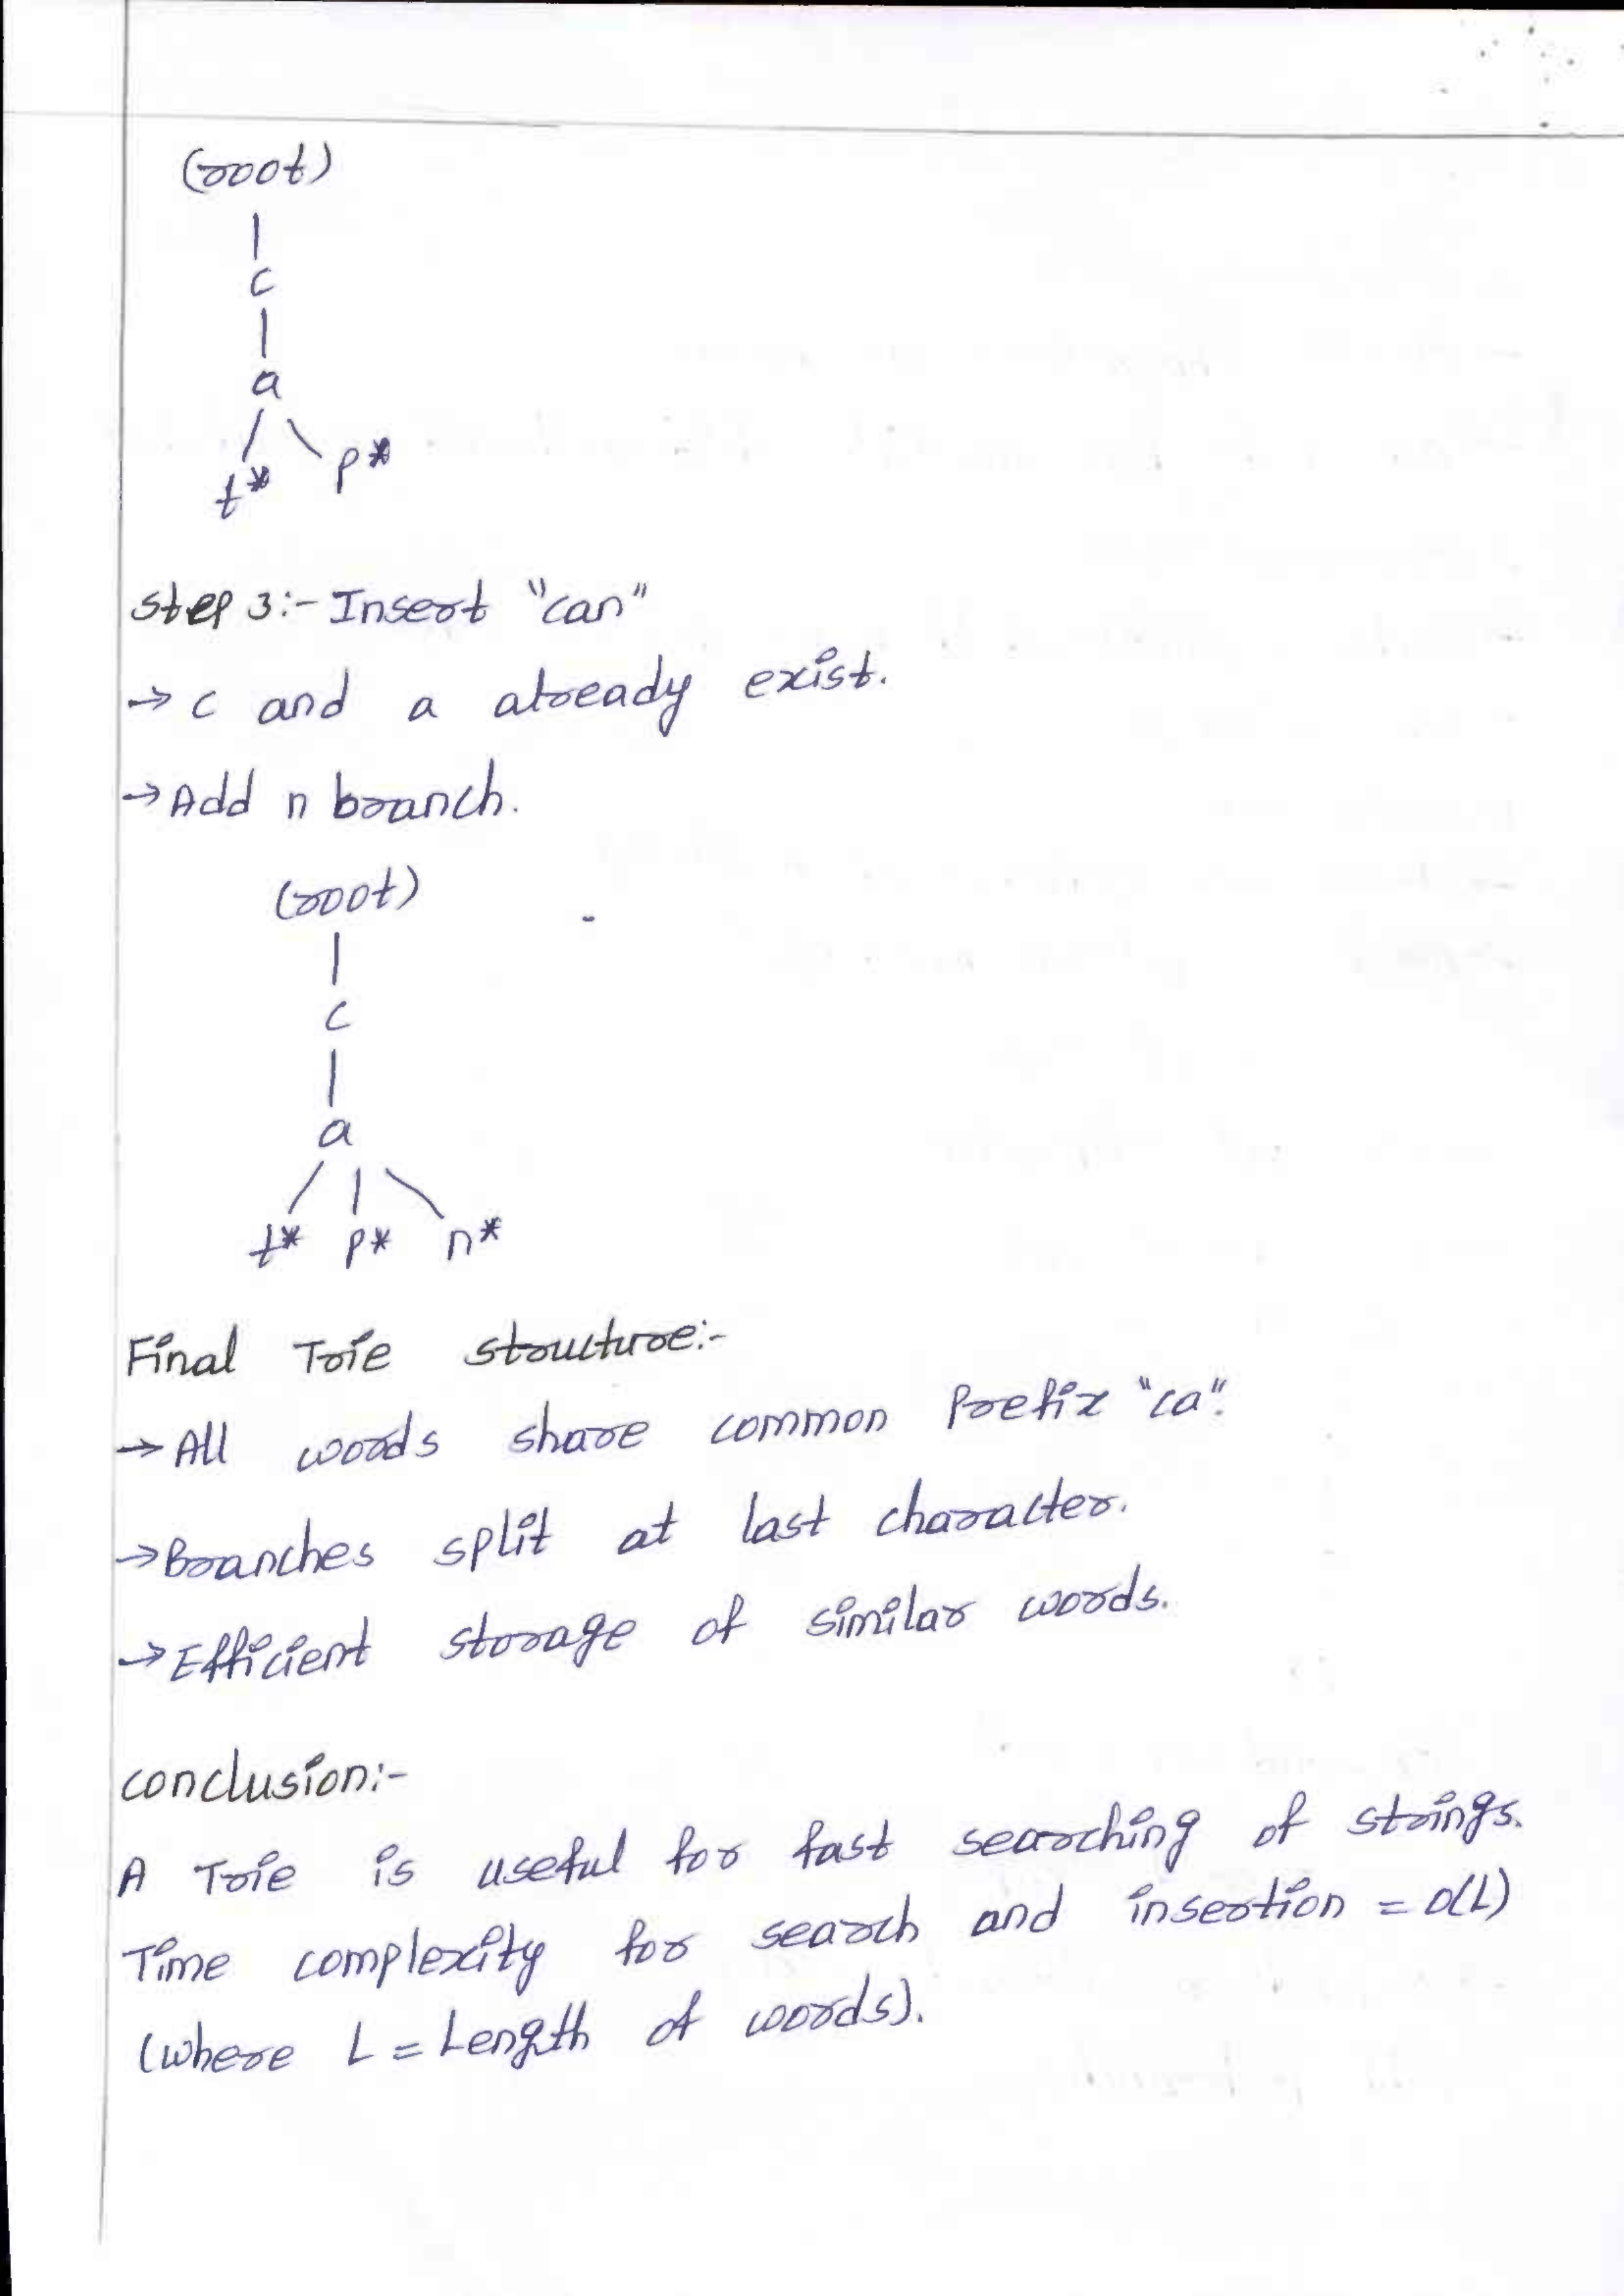 (root)
|
c
|
a
/ \
t* p*
Step 3:- Insert "can"
→ c and a already exist.
→ Add n branch.
(root)
|
c
|
a
/ | \
t* p* n*
Final Trie structure:-
→ All words share common Prefix "ca".
→ Branches split at last character.
→ Efficient storage of similar words.
conclusion:-
A Trie is useful for fast searching of strings.
Time complexity for search and insertion = O(L)
(where L = Length of words).